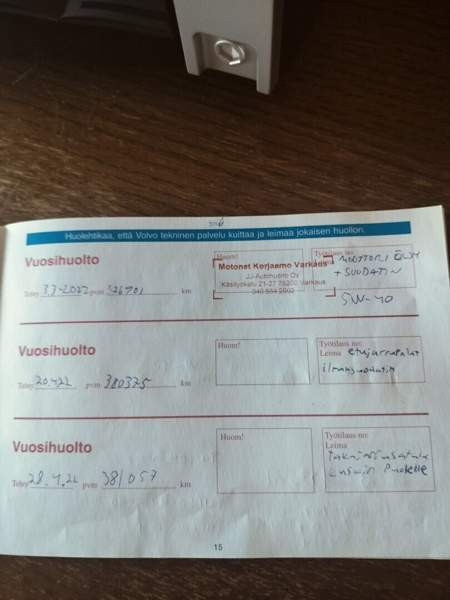 Huolehtikaa, että Volvo tekninen palvelu kuittaa ja leimaa jokaisen huollon.
Vuosihuolto
Huom!
Työtilaus no:
Motonet Korjaamo Varkaus
JJ-Autohuolto Oy
Käsityökatu 21-27 78200 Varkaus
MOOTTORI ÖLJY
+ SUODATIN
5W-40
Tehty 3.3-2022 pvm 376701 km
Vuosihuolto
Huom!
Työtilaus no:
Leima etujarrupalat
ilmansuodatin
Tehty 20.4.22 pvm 380375 km
Vuosihuolto
Huom!
Työtilaus no:
Leima
Tehty 28.4.22 pvm 381057 km
15